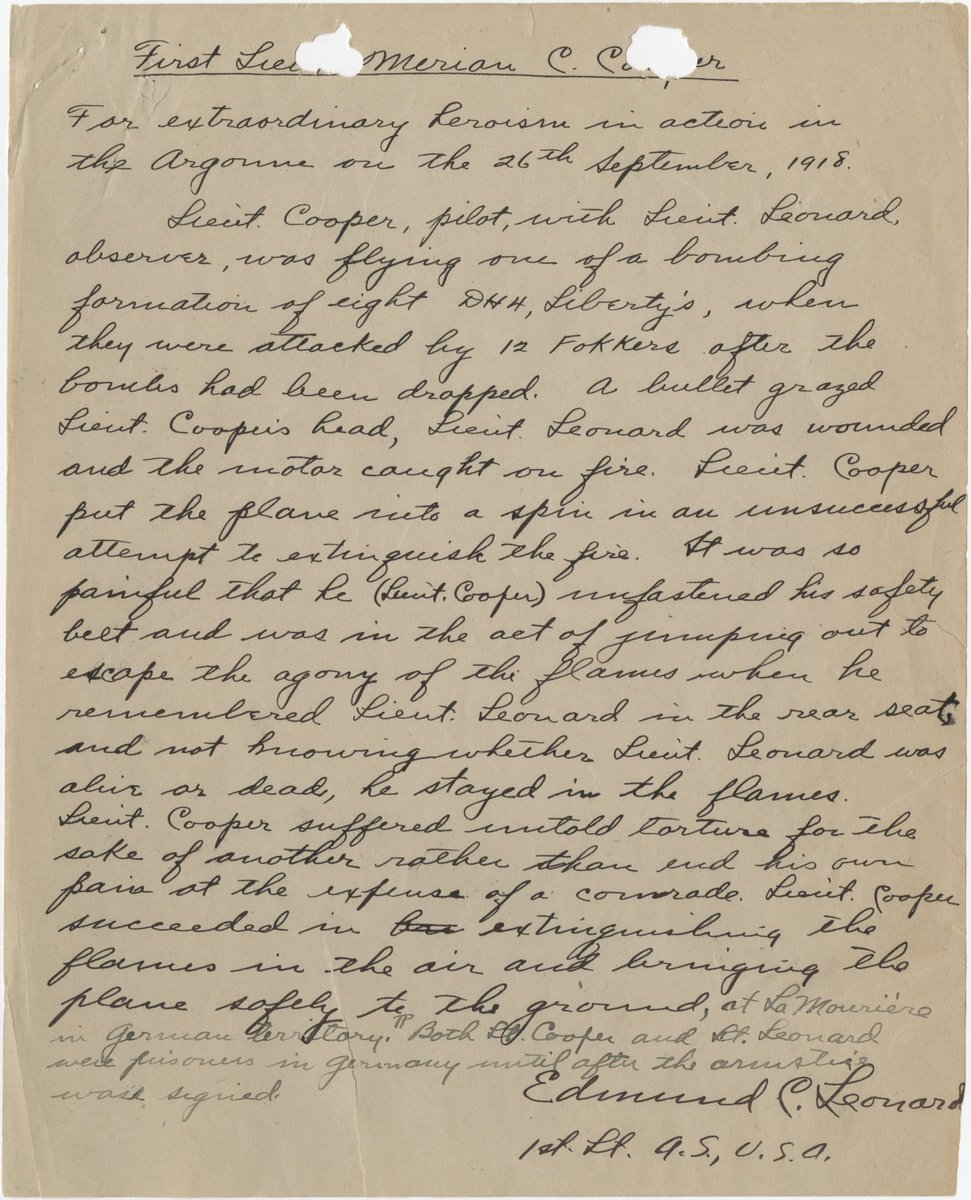 First Lieu. Merian C. Cooper
For extraordinary heroism in action in
the Argonne on the 26th September, 1918.
Lieut. Cooper, pilot, with Lieut. Leonard,
observer, was flying one of a bombing
formation of eight DH4, Liberty's, when
they were attacked by 12 Fokkers after the
bombs had been dropped. A bullet grazed
Lieut. Cooper's head, Lieut. Leonard was wounded
and the motor caught on fire. Lieut. Cooper
put the plane into a spin in an unsuccessful
attempt to extinguish the fire. It was so
painful that he (Lieut. Cooper) unfastened his safety
belt and was in the act of jumping out to
escape the agony of the flames when he
remembered Lieut. Leonard in the rear seat,
and not knowing whether Lieut. Leonard was
alive or dead, he stayed in the flames.
Lieut. Cooper suffered untold torture for the
sake of another rather than end his own
pain at the expense of a comrade. Lieut. Cooper
succeeded in extinguishing the
flames in the air and bringing the
plane safely to the ground, at La Mourière
in German territory. ¶ Both Lt. Cooper and Lt. Leonard
were prisoners in Germany until after the armstice
was signed.
Edmund C. Leonard
1st. Lt. A.S., U.S.A.